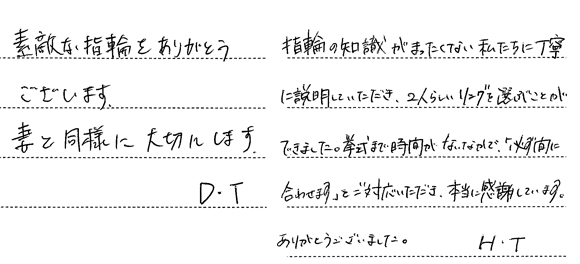 素敵な指輪をありがとう
ございます。
妻と同様に大切にします。
D・T
指輪の知識がまったくない私たちに丁寧
に説明していただき、2人らしいリングを選ぶことが
できました。挙式まで時間がないなかで、「必ず間に
合わせます」とご対応いただき、本当に感謝しています。
ありがとうございました。
H・T